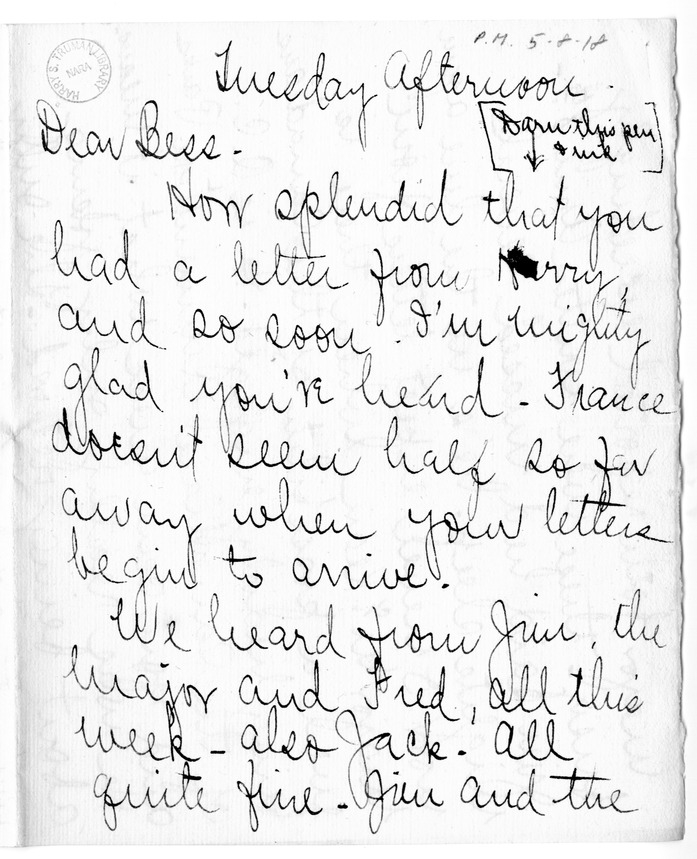 P.M. 5-8-18
HARRY S. TRUMAN LIBRARY
NARA
Tuesday Afternoon.
[Darn this pen
& ink]
Dear Bess -
How splendid that you
had a letter from Harry,
and so soon. I'm mighty
glad you've heard - France
doesn't seem half so far
away when your letters
begin to arrive.
We heard from Jim, the
major and Fred, all this
week - also Jack. All
quite fine - Jim and the